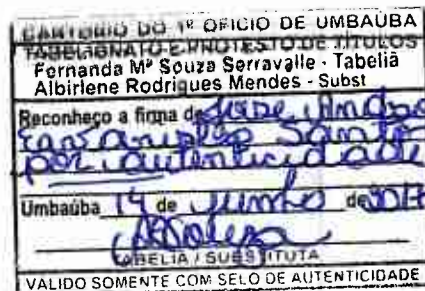 CARTORIO DO 1º OFICIO DE UMBAÚBA
TABELIONATO E PROTESTO DE TÍTULOS
Fernanda Mª Souza Serravalle - Tabeliã
Albirlene Rodrigues Mendes - Subst
Reconheço a firma de Jose
Santos
por autenticidade
Umbaúba 14 de junho de 2017
TABELIÃ / SUBSTITUTA
VALIDO SOMENTE COM SELO DE AUTENTICIDADE